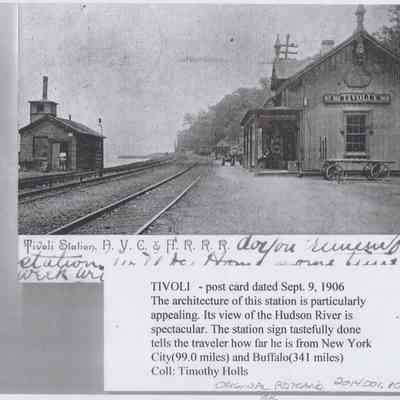 TIVOLI
Tivoli Station, N. Y. C. & H. R. R. R. do you rememb
station
TIVOLI - post card dated Sept. 9, 1906
The architecture of this station is particularly
appealing. Its view of the Hudson River is
spectacular. The station sign tastefully done
tells the traveler how far he is from New York
City(99.0 miles) and Buffalo(341 miles)
Coll: Timothy Holls
ORIGINAL POSTCARD 2014.001.